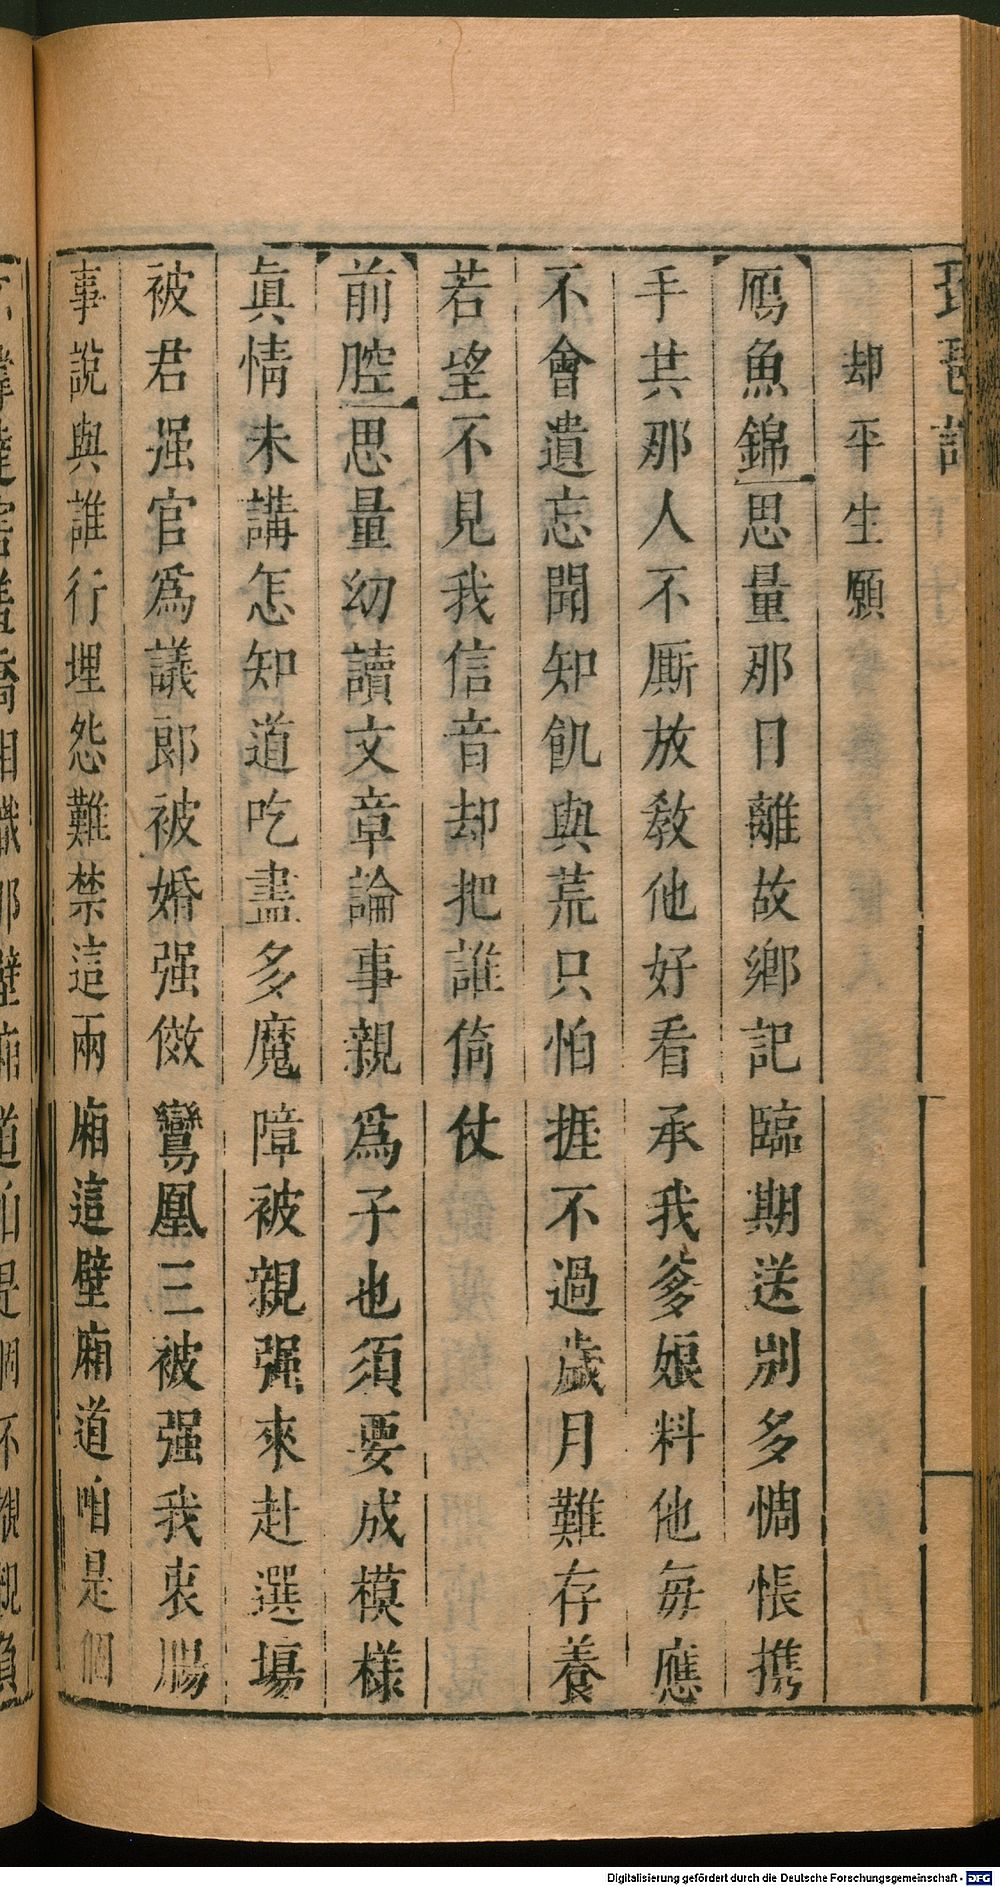 琵琶記
却平生願
鴈魚錦思量那日離故鄉記臨期送别多惆悵携
手共那人不厮放教他好看承我爹娘料他每應
不會遺忘聞知飢與荒只怕捱不過歲月難存養
若望不見我信音却把誰倚仗
前腔思量幼讀文章論事親爲子也須要成模樣
眞情未講怎知道吃盡多魔障被親强來赴選塲
被君强官爲議郎被婚强傚鸞凰三被强我衷腸
事說與誰行埋怨難禁這兩廂這壁廂道咱是個
Digitalisierung gefördert durch die Deutsche Forschungsgemeinschaft - DFG